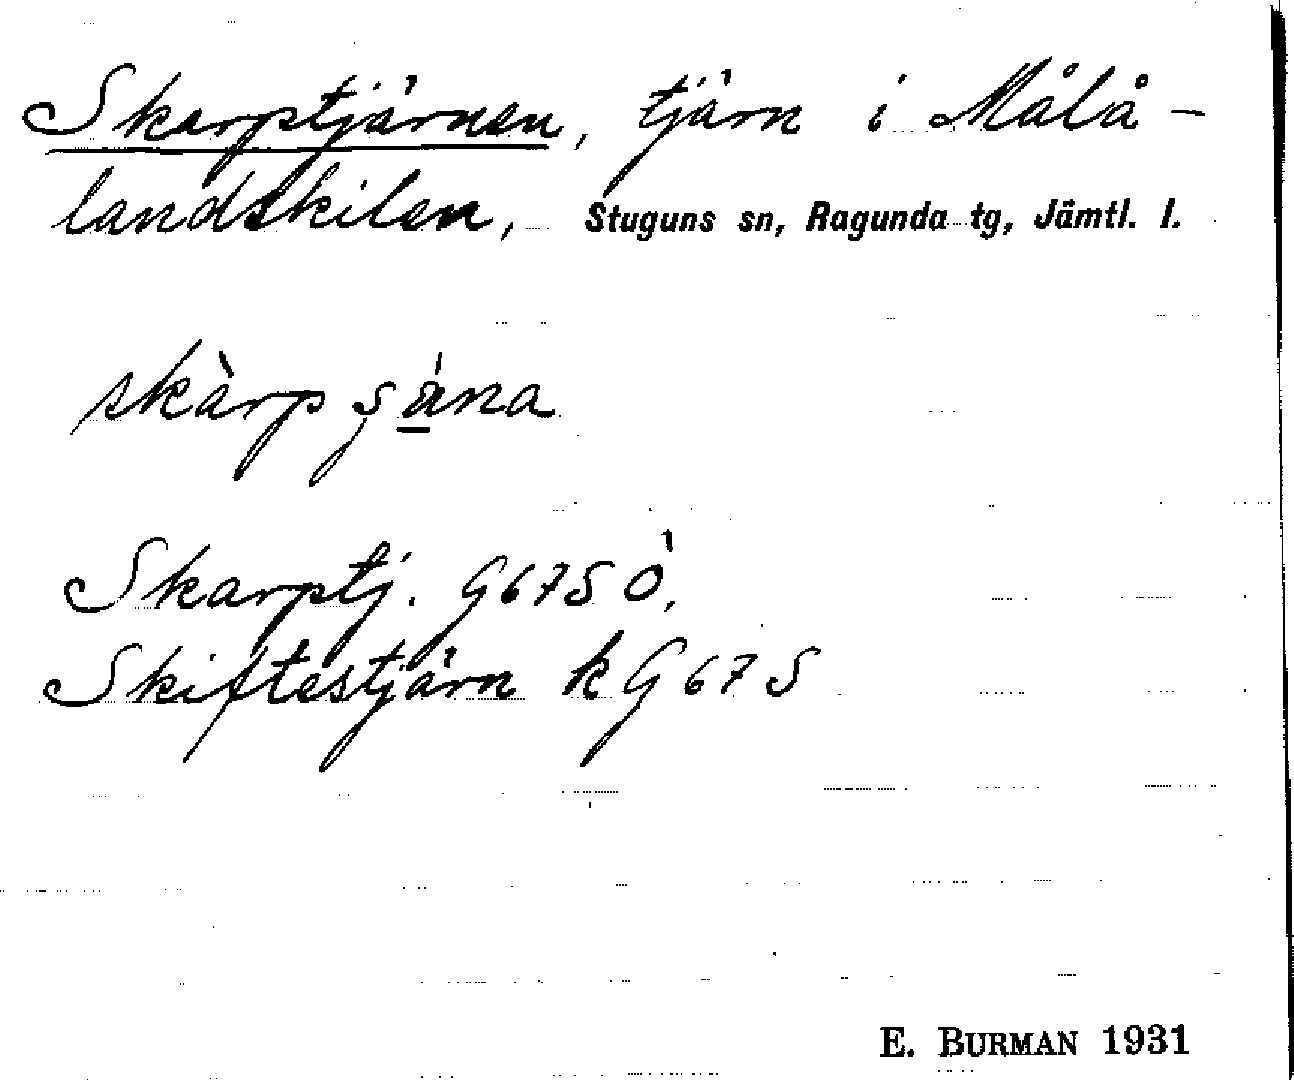 Skarptjärnen, tjärn i Målå-
landskilen, Stuguns sn, Ragunda tg, Jämtl. l.
skàrp şä́na
Skarptj. G67SÖ,
Skiftestjärn kG67S
E. BURMAN 1931